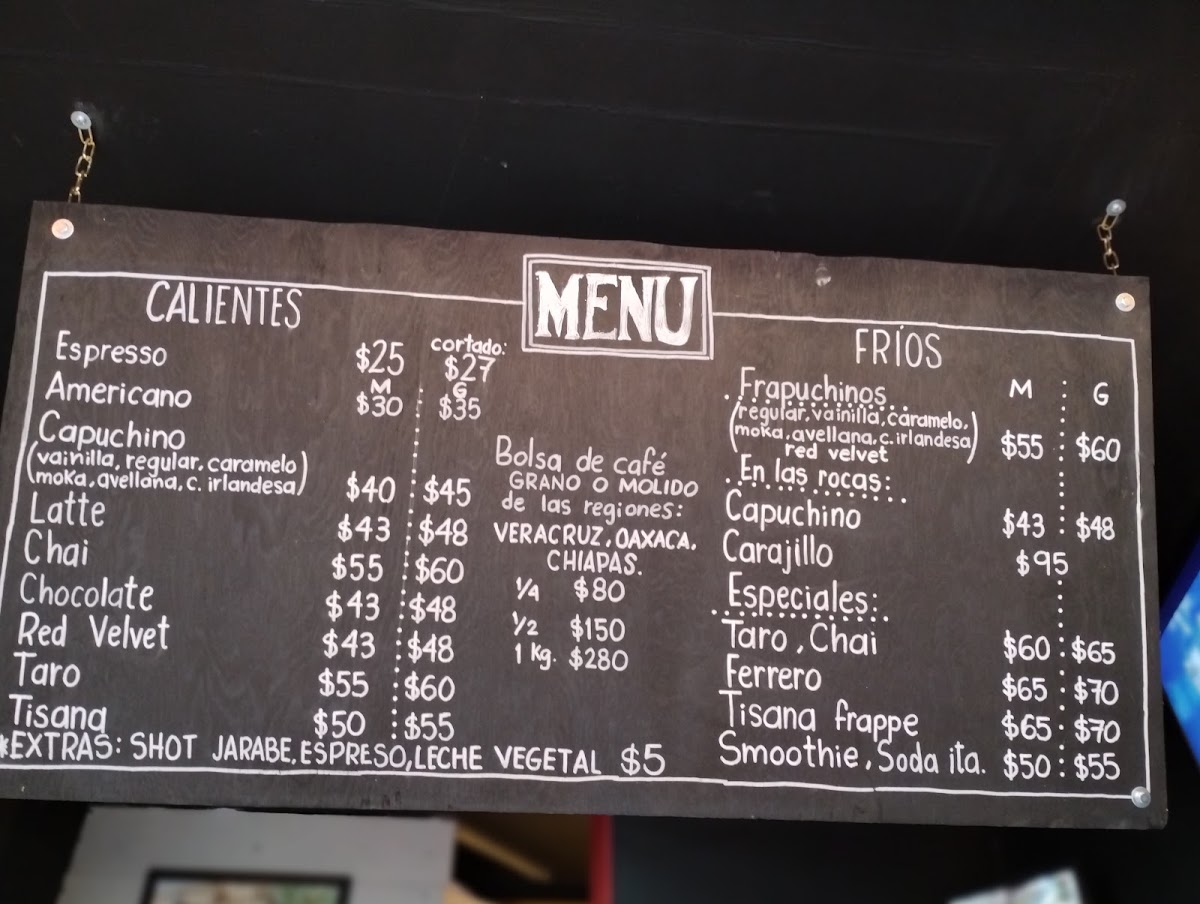 MENU
CALIENTES
Espresso $25 cortado: $27
M G
Americano $30 $35
Capuchino
(vainilla, regular, caramelo
moka, avellana, c. irlandesa) $40 $45
Latte $43 $48
Chai $55 $60
Chocolate $43 $48
Red Velvet $43 $48
Taro $55 $60
Tisana $50 $55
*EXTRAS: SHOT JARABE, ESPRESO, LECHE VEGETAL $5
Bolsa de café
GRANO O MOLIDO
de las regiones:
VERACRUZ, OAXACA,
CHIAPAS.
1/4 $80
1/2 $150
1 Kg. $280
FRÍOS
Frapuchinos M G
(regular, vainilla, caramelo,
moka, avellana, c. irlandesa)
red velvet $55 $60
En las rocas:
Capuchino $43 $48
Carajillo $95
Especiales:
Taro, Chai $60 $65
Ferrero $65 $70
Tisana frappe $65 $70
Smoothie, Soda ita. $50 $55